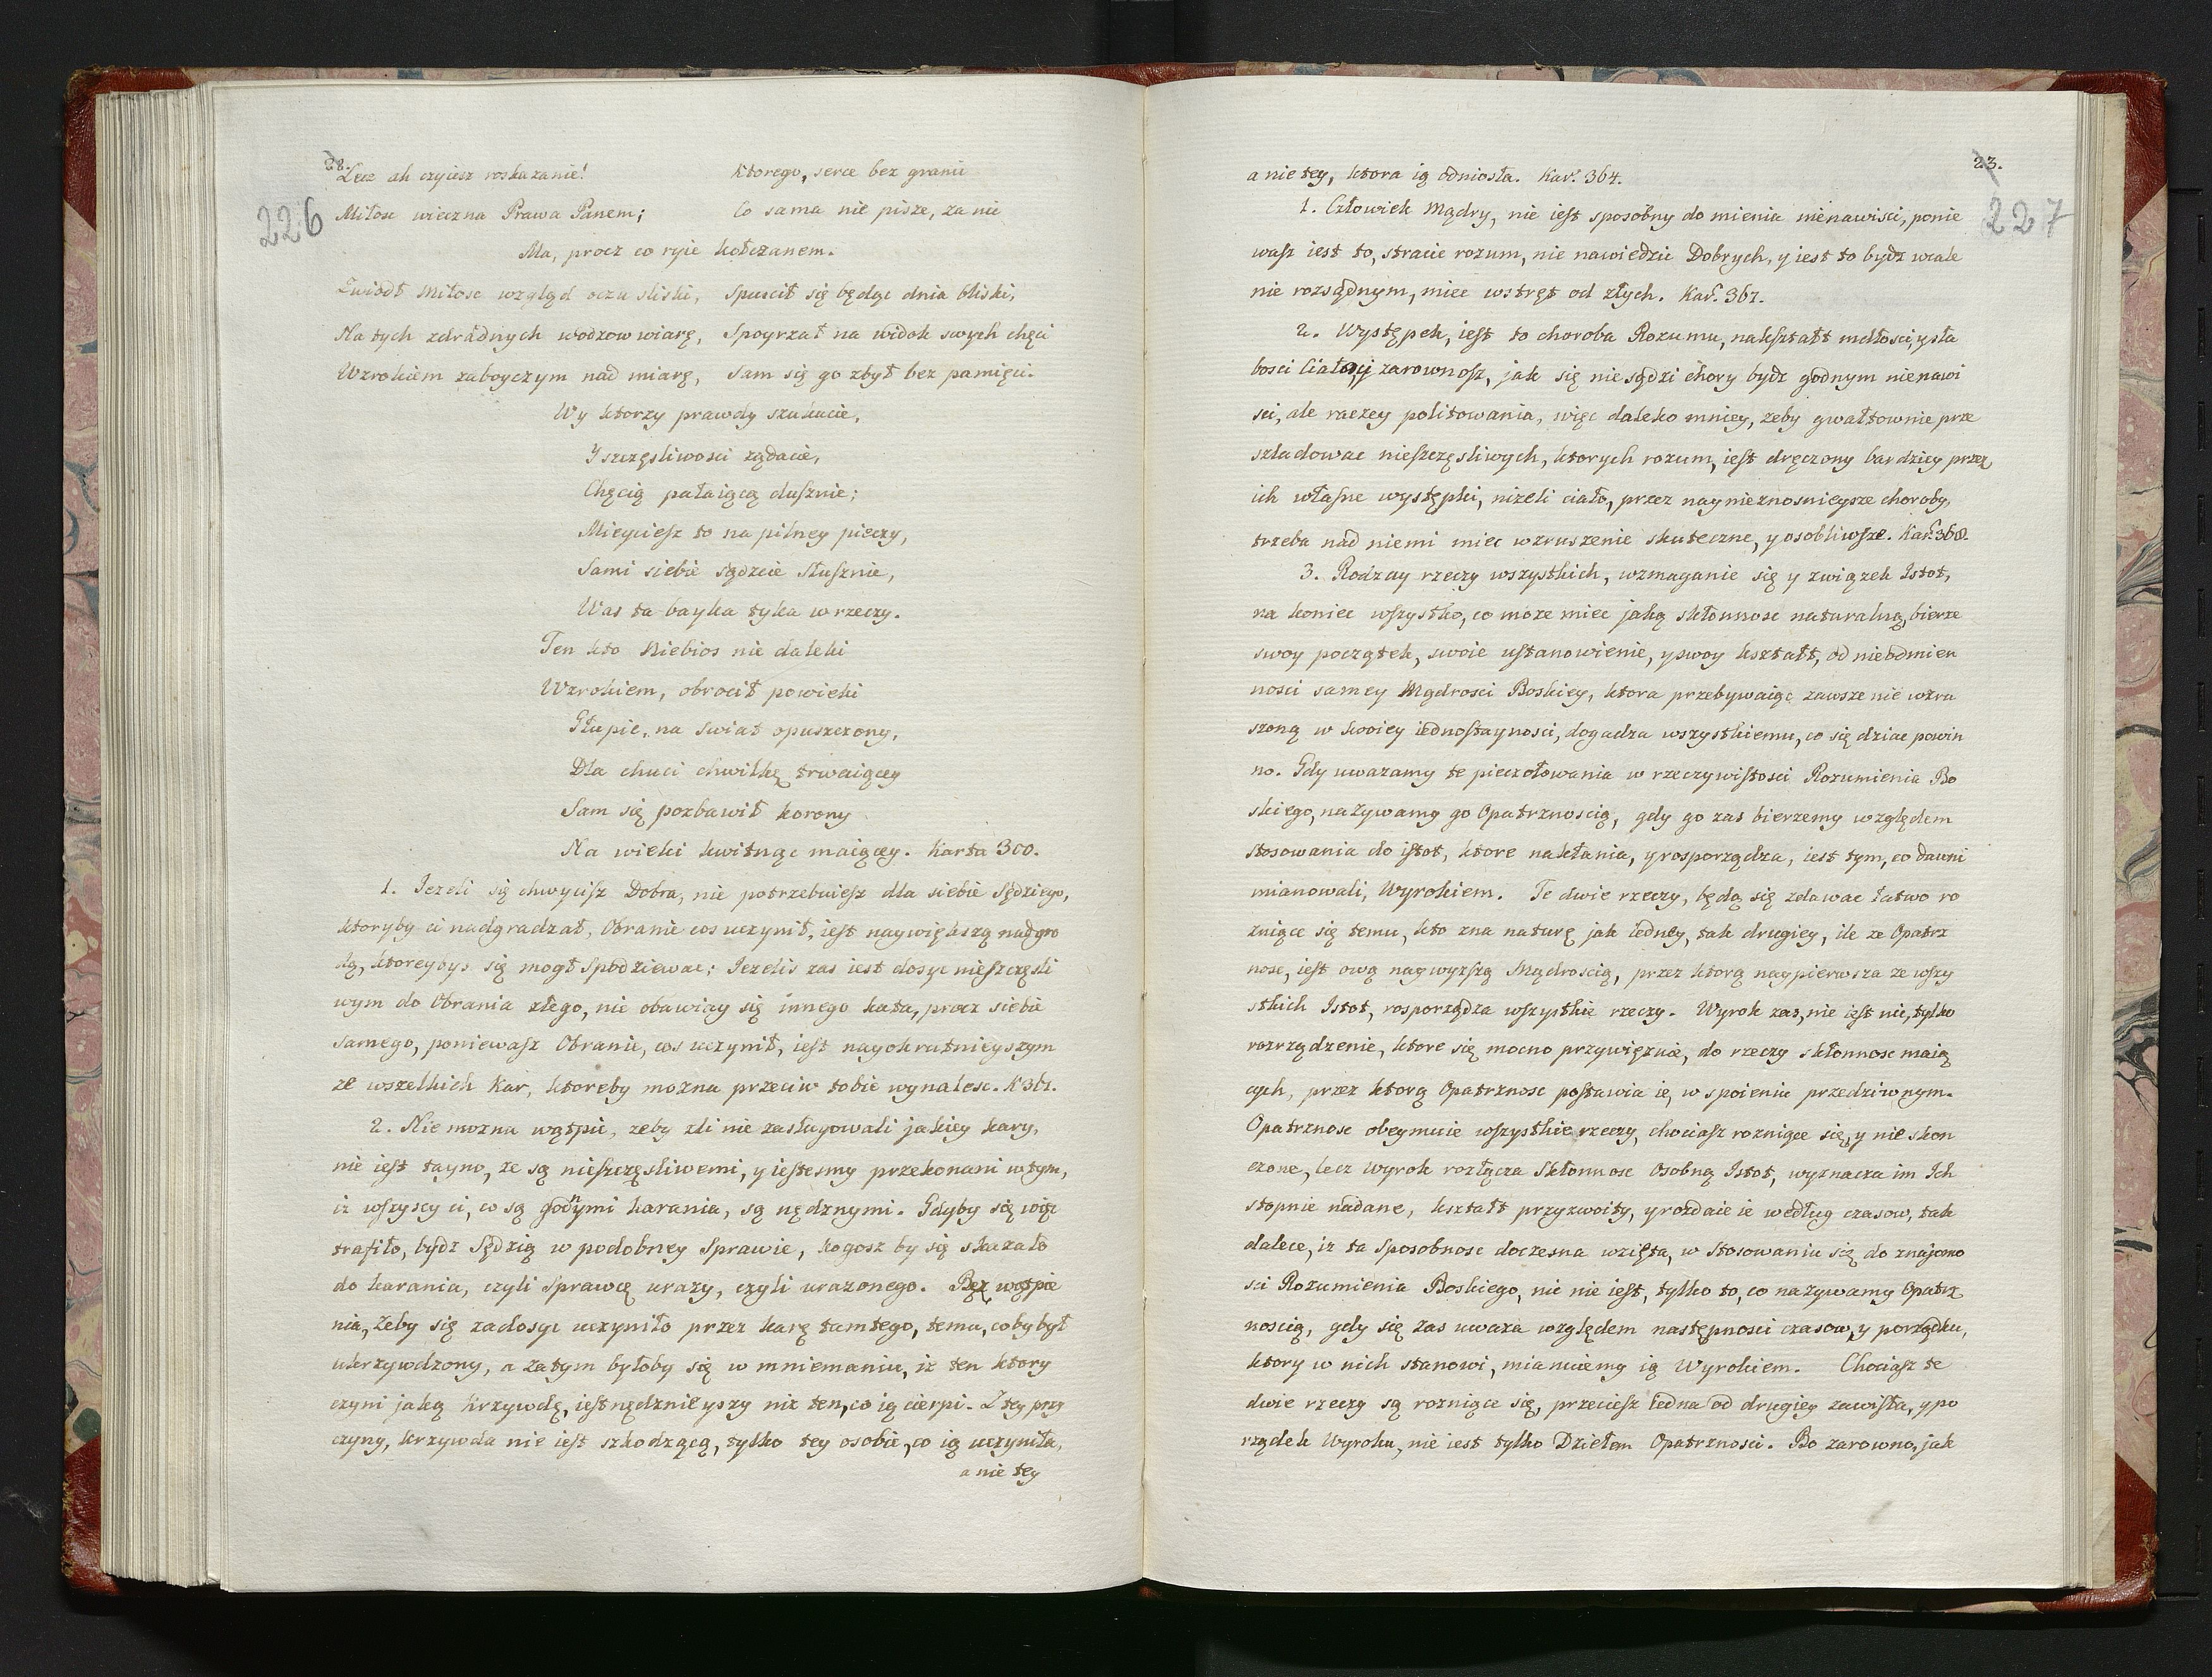 28.
226
Lecz ah czyiesz roskazanie! Ktorego, serce bez granic
Miłosc wieczna Prawa Panem; Co sama nie pisze, za nic
Ma, procz co ryie kołczanem.
Zwiodł Miłosc wzgląd oczu sliski, Spuscił się będąc dnia bliski,
Na tych zdradnych wodzow wiarę, Spoyrzał na widok swych chęci
Wzrokiem zaboyczym nad miarę, Sam się go zbył bez pamięci.
Wy ktorzy prawdy szukacie,
Y szczęsliwosci ządacie,
Chęcią pałaiącą dusznie;
Mieyciesz to na pilney pieczy,
Sami siebie sądzcie słusznie,
Was ta bayka tyka w rzeczy.
Ten kto Niebios nie daleki
Wzrokiem, obrocił powieki
Głupie, na swiat opuszczony,
Dla chuci chwilkę trwaiącey
Sam się pozbawił korony
Na wieki kwitnąc maiącey. Karta 300.
1. Iezeli się chwycisz Dobra, nie potrzebuiesz dla siebie Sędziego,
ktoryby ci nadgradzał, Obranie cos uczynił, iest naywiększą nadgro
dą, ktoreybys się mogł spodziewac; Iezelis zas iest dosyc nieszczęsli
wym do Obrania złego, nie obawiay się innego kata, procz siebie
samego, poniewasz Obranie, cos uczynił, iest nayokrutnieyszym
ze wszelkich Kar, ktoreby mozna przeciw tobie wynalesc. K 361.
2. Nie mozna wątpic, zeby zli nie zasługowali jakiey kary,
nie iest tayno, ze są nieszczęsliwemi, y iestesmy przekonani w tym,
iz wszyscy ci, co są godnymi karania, są nędznymi. Gdyby się więc
trafiło, bydz Sędzią w podobney sprawie, kogosz by się skazało
do karania, czyli sprawcę urazy, czyli urazonego. Bez wątpie
nia, Zeby się zadosyc uczyniło przez karę tamtego, temu, coby był
ukrzywdzony, a zatym byłoby się w mniemaniu, iz ten ktory
czyni jaką krzywdę, iest nędznieyszy niz ten, co ią cierpi. Z tey przy
czyny, krzywda nie iest szkodzącą, tylko tey osobie, co ią uczyniła,
a nie tey
23.
227
a nie tey, ktora ią odniosła. Kar. 364.
1. Człowiek Mądry, nie iest sposobny do mienia nienawisci, ponie
wasz iest to, stracic rozum, nie nawiedzic Dobrych, y iest to bydz wcale
nie rozsądnym, miec wstręt od złych. Kar. 367.
2. Występek, iest to choroba Rozumu, nakształt mdłosci, y sła
bosci Ciała, y zarownosz, jak się nie sądzi chory bydz godnym nienawi
sci, ale raczey politowania, więc daleko mniey, zeby gwałtownie prze
szladowac nieszczęsliwych, ktorych rozum, iest dręczony bardziey przez
ich własne występki, nizeli ciało, przez nayniezosnieysze choroby,
trzeba nad niemi miec wzruszenie skuteczne, y osobliwsze. Kar. 368.
3. Rodzay rzeczy wszystkich, wzmaganie się y związek Istot,
na koniec wszystko, co moze miec jaką skłonnosc naturalną, bierze
swoy początek, swoie ustanowienie, y swoy kształt, od nieodmien
nosci samey Mądrosci Boskiey, ktora przebywaiąc zawsze nie wzru
szoną w swoiey iednostaynosci, dogadza wszystkiemu, co się dziac powin
no. Gdy uwazamy te pieczołowania w rzeczywistosci Rozumienia Bo
skiego, nazywamy go Opatrznoscią, gdy go zas bierzemy względem
stosowania do istot, ktore nakłania, y rosporządza, iest tym, co dawni
mianowali, Wyrokiem. Te dwie rzeczy, będą się zdawac łatwo ro
zniące się temu, kto zna naturę jak iedney, tak drugiey, ile ze Opatrz
nosc, iest ową naywyzszą Mądroscią, przez ktorą naypierwsza ze wszy
stkich Istot, rosporządza wszystkie rzeczy. Wyrok zas, nie iest nic, tylko
rozrządzenie, ktore się mocno przywięzuie, do rzeczy skłonnosc maią
cych, przez ktorą Opatrznosc postawia ie, w spoieniu przedziwnym.
Opatrznosc obeymuie wszystkie rzeczy, chociasz rozniące się, y nie skon
czone, lecz wyrok rozłącza skłonnosc osobną Istot, wyznacza im Ich
stopnie nadane, kształt przyzwoity, y rozdaie ie według czasow, tak
dalece, iz ta sposobnosc doczesna wzięta, w stosowaniu się do znajomo
sci Rozumienia Boskiego, nic nie iest, tylko to, co nazywamy Opatrz
noscią, gdy się zas uwaza względem następnosci czasow, y porządku,
ktory w nich stanowi, mianuiemy ią Wyrokiem. Chociasz te
dwie rzeczy są rozniące się, przeciesz iedna od drugiey zawisła, y po
rządek Wyroku, nie iest tylko Dziełem Opatrznosci. Bo zarowno, jak